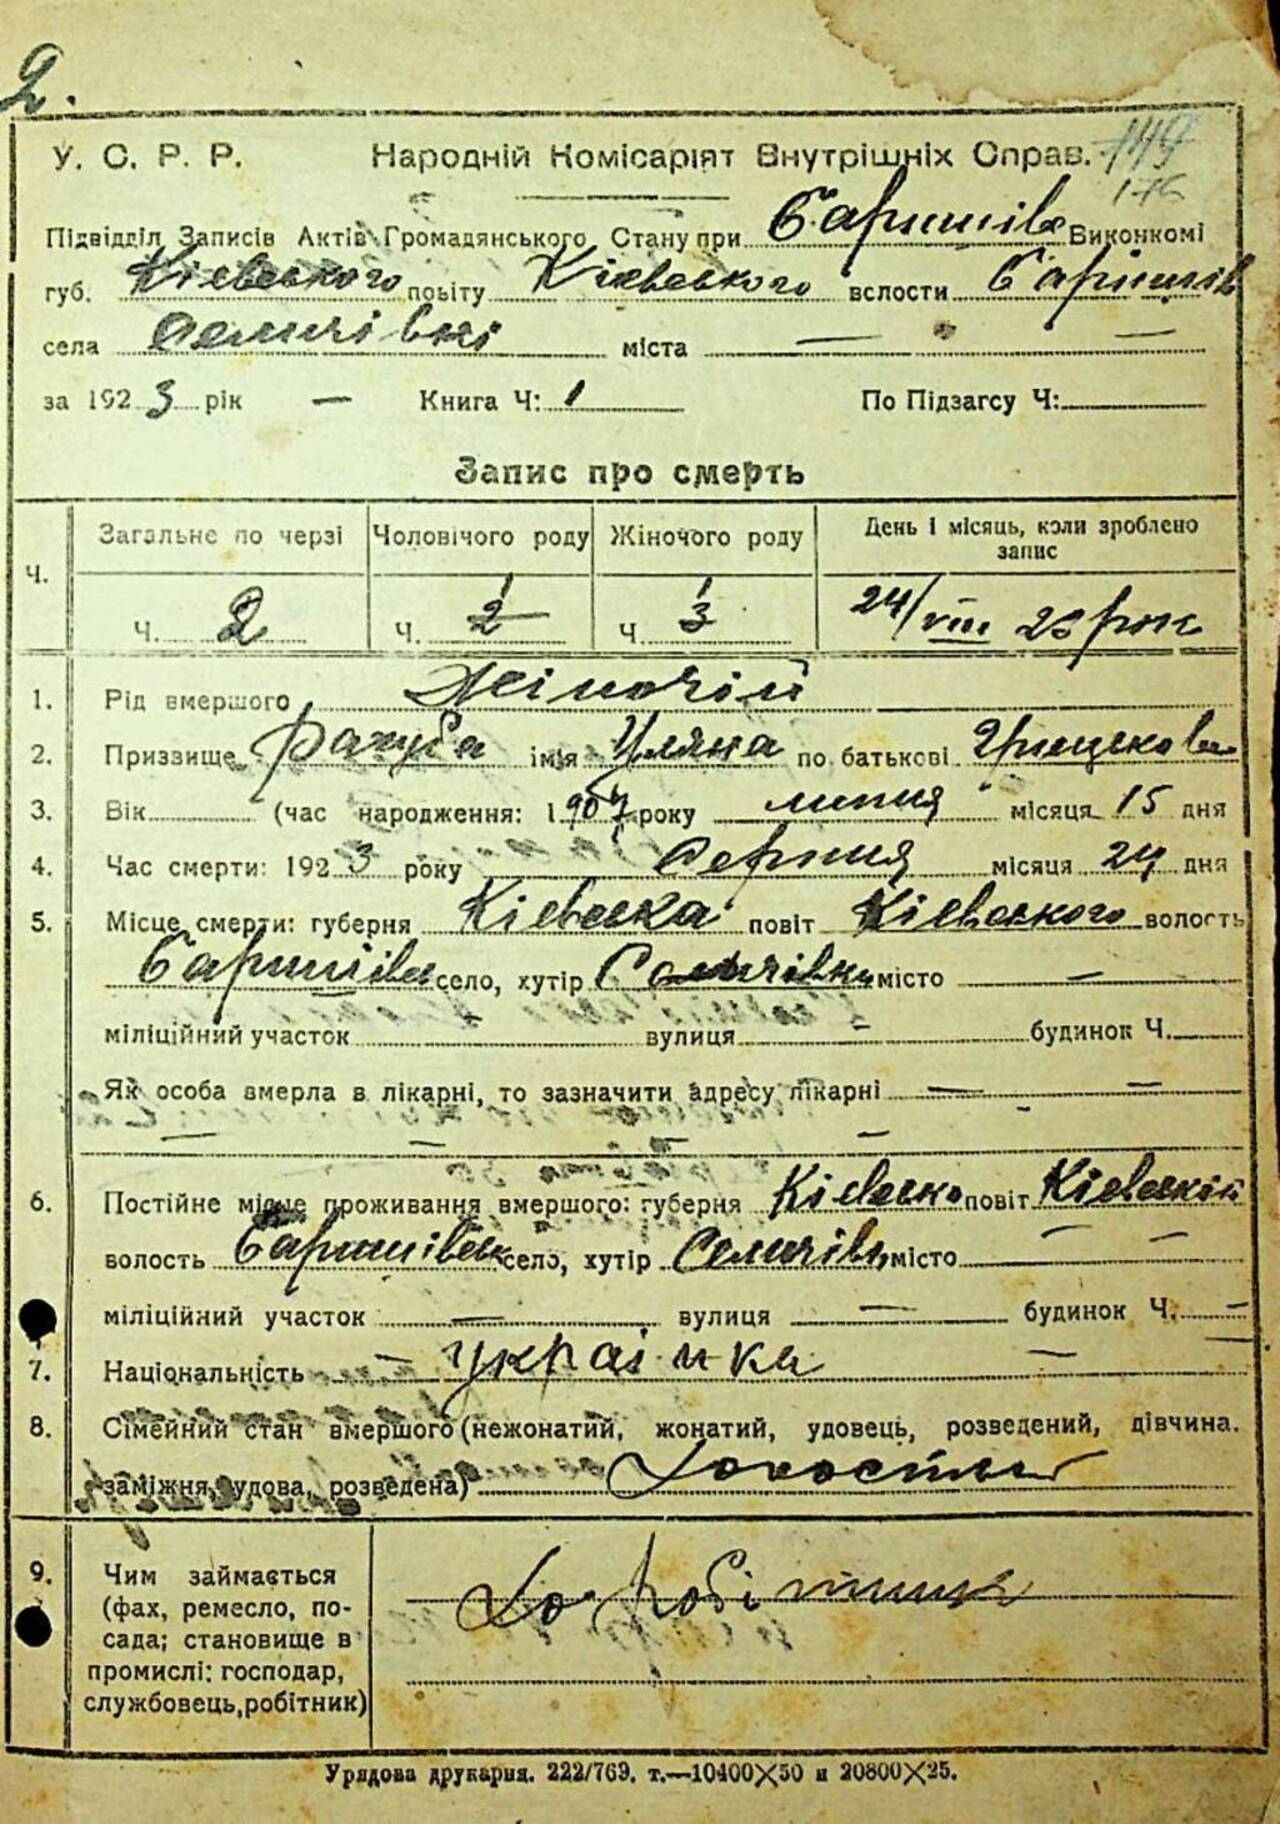 2.
У. С. Р. Р. Народній Комісаріят Внутрішніх Справ. 149
176
Підвідділ Записів Актів Громадянського Стану при Баришівс Виконкомі
губ. Кіевського повіту Кіевського вслости Баришів
села Селичівкі міста — " —
за 1923 рік — Книга Ч: 1 По Підзагсу Ч:
Запис про смерть
Ч. Загальне по черзі Чоловічого роду Жіночого роду День і місяць, коли зроблено запис
Ч. 2 Ч. 2 Ч 3 24/VIII 23 рок
1. Рід вмершого Жіночій
2. Призвище імя Уляна по батькові
3. Вік (час народження: 1907 року липня місяця 15 дня
4. Час смерти: 1923 року Серпня місяця 24 дня
5. Місце смерти: губерня Кіевська повіт Кіевського волость
Баришівс село, хутір Селичівки місто —
міліційний участок вулиця — будинок Ч.
Як особа вмерла в лікарні, то зазначити адресу лікарні — —
— — —
6. Постійне місце проживання вмершого: губерня Кіевська повіт Кіевський
волость Баришівськ село, хутір Селичівк місто — —
міліційний участок — вулиця — будинок Ч. —
7. Національність — українка —
8. Сімейний стан вмершого (нежонатий, жонатий, удовець, розведений, дівчина.
заміжня, удова, розведена)
9. Чим займається
(фах, ремесло, по-
сада; становище в
промислі: господар,
службовець, робітник)
Урядова друкарня. 222/769. т.—10400×50 и 20800×25.